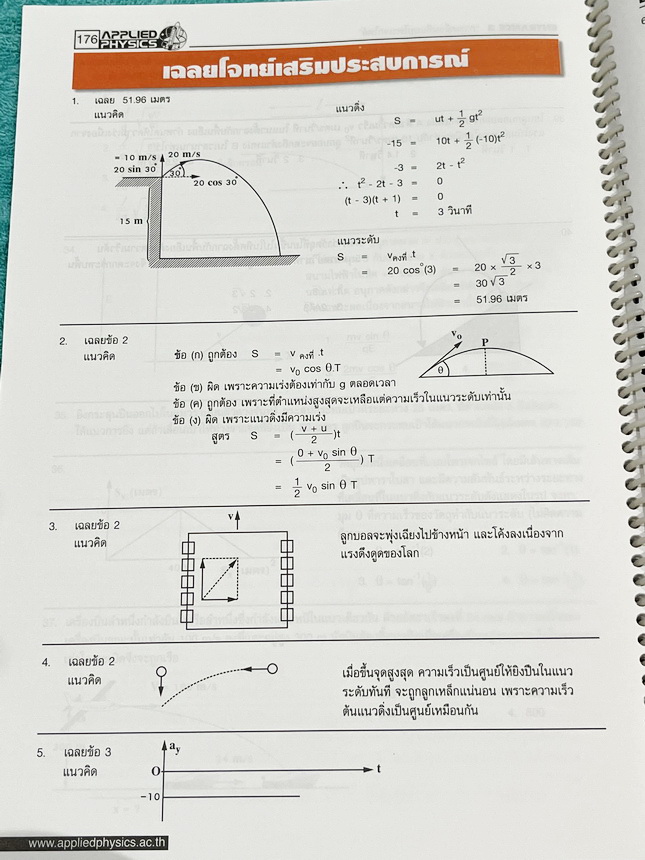 176 APPLIED PHYSICS
เฉลยโจทย์เสริมประสบการณ์
1. เฉลย 51.96 เมตร
แนวคิด
= 10 m/s 20 m/s
20 sin 30°
30°
20 cos 30°
15 m
แนวดิ่ง
S = ut + 1/2 gt²
-15 = 10t + 1/2 (-10)t²
-3 = 2t - t²
∴ t² - 2t - 3 = 0
(t - 3)(t + 1) = 0
t = 3 วินาที
แนวระดับ
S = v คงที่ .t
= 20 cos°(3) = 20 × √3/2 × 3
= 30√3
= 51.96 เมตร
2. เฉลยข้อ 2
แนวคิด
ข้อ (ก) ถูกต้อง S = v คงที่ .t
= v₀ cos θ.T
v₀ P
θ
ข้อ (ข) ผิด เพราะความเร่งต้องเท่ากับ g ตลอดเวลา
ข้อ (ค) ถูกต้อง เพราะที่ตำแหน่งสูงสุดจะเหลือแต่ความเร็วในแนวระดับเท่านั้น
ข้อ (ง) ผิด เพราะแนวดิ่งมีความเร่ง
สูตร S = (v + u / 2)t
= (0 + v₀ sin θ / 2) T
= 1/2 v₀ sin θ T
3. เฉลยข้อ 2
แนวคิด
v
ลูกบอลจะพุ่งเฉียงไปข้างหน้า และโค้งลงเนื่องจาก
แรงดึงดูดของโลก
4. เฉลยข้อ 2
แนวคิด
เมื่อขึ้นจุดสูงสุด ความเร็วเป็นศูนย์ให้ยิงปืนในแนว
ระดับทันที จะถูกลูกเหล็กแน่นอน เพราะความเร็ว
ต้นแนวดิ่งเป็นศูนย์เหมือนกัน
5. เฉลยข้อ 3
แนวคิด
a_y
O
t
-10
www.appliedphysics.ac.th